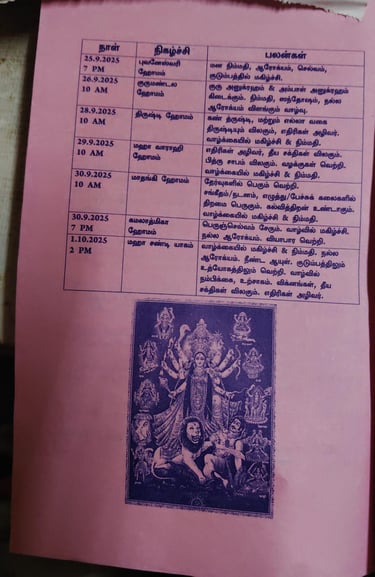 நாள் நிகழ்ச்சி பலன்கள்
25.9.2025 புவனேஸ்வரி மன நிம்மதி, ஆரோக்யம், செல்வம்,
7 PM ஹோமம் குடும்பத்தில் மகிழ்ச்சி.
26.9.2025 குருமண்டல குரு அனுக்ரஹம் & அம்பாள் அனுக்ரஹம்
10 AM ஹோமம் கிடைக்கும். நிம்மதி, ஸந்தோஷம், நல்ல
ஆரோக்யம் விளங்கும் வாழ்வு.
28.9.2025 திருஷ்டி ஹோமம் கண் த்ருஷ்டி, மற்றும் எல்லா வகை
10 AM திருஷ்டியும் விலகும், எதிரிகள் அழிவர்.
வாழ்க்கையில் மகிழ்ச்சி & நிம்மதி.
29.9.2025 மஹா வாராஹி எதிரிகள் அழிவர், தீய சக்திகள் விலகும்.
10 AM ஹோமம் பித்ரு சாபம் விலகும். வழக்குகள் வெற்றி.
வாழ்க்கையில் மகிழ்ச்சி & நிம்மதி.
30.9.2025 மாதங்கி ஹோமம் தேர்வுகளில் பெரும் வெற்றி.
10 AM சங்கீதம்/நடனம், எழுத்து/பேச்சுக் கலைகளில்
திறமை பெருகும். கல்வித்திறன் உண்டாகும்.
வாழ்க்கையில் மகிழ்ச்சி & நிம்மதி.
30.9.2025 கமலாத்மிகா பெருஞ்செல்வம் சேரும். வாழ்வில் மகிழ்ச்சி.
7 PM ஹோமம் நல்ல ஆரோக்யம். வியாபார வெற்றி.
1.10.2025 மஹா சண்டி யாகம் வாழ்க்கையில் மகிழ்ச்சி & நிம்மதி. நல்ல
2 PM ஆரோக்யம். நீண்ட ஆயுள். குடும்பத்திலும்
உத்யோகத்திலும் வெற்றி. வாழ்வில்
நம்பிக்கை, உற்சாகம். விக்னங்கள், தீய
சக்திகள் விலகும். எதிரிகள் அழிவர்.